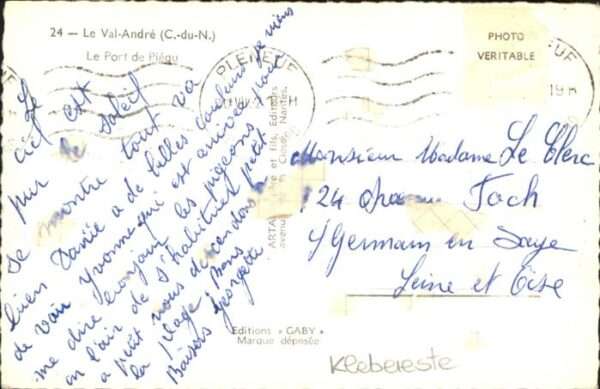 24 - Le Val-André (C.-du-N.)
Le Port de Piégu
PHOTO
VERITABLE
PLENEUF
Le
ciel est
pur le soleil
se montre tout va
bien Danié a de belles couleurs je viens
de voir Yvonne qui est arrivée pour
me dire bonjour les pigeons
on l'air de s'habituer petit
a petit nous descendons a
la plage, Bons
Baisers Georgette
Monsieur Madame Le Clerc
24 Foch
S/Germain en Laye
Seine et Oise
et fils, Editeurs
Nantes.
Editions « GABY »
Marque déposée
Klebereste